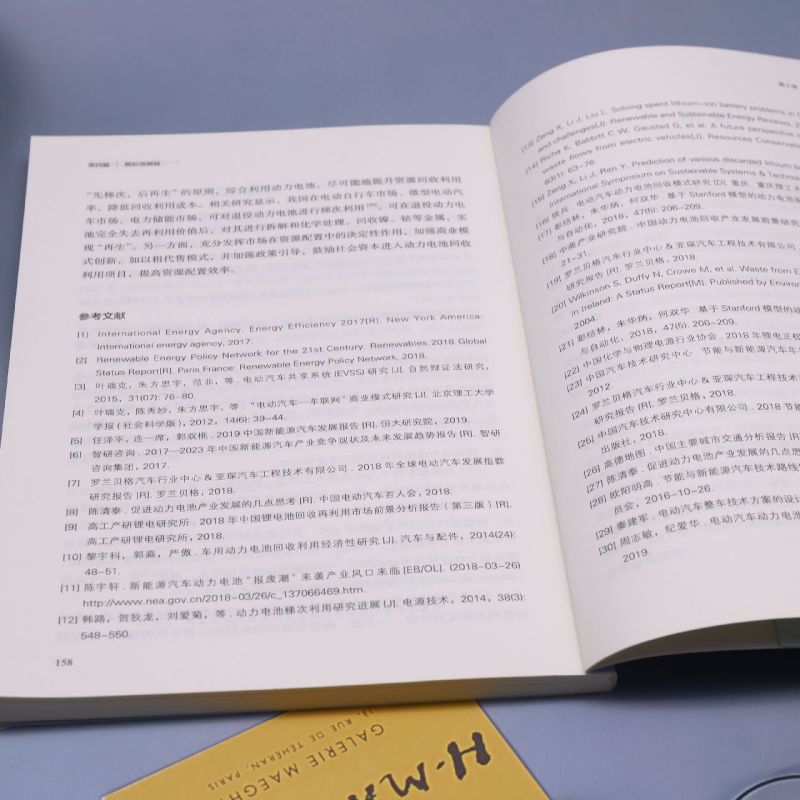 第四篇 | 模拟预测篇
“先梯次,后再生”的原则,综合利用动力电池,尽可能地提升资源回收利用
率,降低回收利用成本。相关研究显示,我国在电动自行车市场、微型电动汽
车市场、电力储能市场,可对退役动力电池进行梯次利用[30]。可在退役动力电
池完全失去再利用价值后,对其进行拆解和化学处理,回收镍、钴等金属,实
现“再生”。另一方面,充分发挥市场在资源配置中的决定性作用,加强商业模
式创新,如以租代售模式,并加强政策引导,鼓励社会资本进入动力电池回收
利用项目,提高资源配置效率。
参考文献
[1] International Energy Agency. Energy Efficiency 2017[R]. New York America:
International energy agency, 2017.
[2] Renewable Energy Policy Network for the 21st Century. Renewables 2018 Global
Status Report[R]. Paris France: Renewable Energy Policy Network, 2018.
[3] 叶瑞克,朱方思宇,范非,等.电动汽车共享系统(EVSS)研究[J].自然辩证法研究,
2015,31(07): 76-80.
[4] 叶瑞克,陈秀妙,朱方思宇,等.“电动汽车—车联网”商业模式研究[J].北京理工大学
学报(社会科学版),2012,14(6): 39-44.
[5] 任泽平,连一席,郭双桃.2019中国新能源汽车发展报告[R].恒大研究院,2019.
[6] 智研咨询.2017—2023年中国新能源汽车产业竞争现状及未来发展趋势报告[R].智研
咨询集团,2017.
[7] 罗兰贝格汽车行业中心&亚琛汽车工程技术有限公司.2018年全球电动汽车发展指数
研究报告[R].罗兰贝格,2018.
[8] 陈清泰.促进动力电池产业发展的几点思考[R].中国电动汽车百人会,2018.
[9] 高工产研锂电研究所.2018年中国锂电池回收再利用市场前景分析报告(第三版)[R].
高工产研锂电研究所,2018.
[10] 黎宇科,郭淼,严傲.车用动力电池回收利用经济性研究[J].汽车与配件,2014(24):
48-51.
[11] 陈宇轩.新能源汽车动力电池“报废潮”来袭产业风口来临[EB/OL].(2018-03-26)
http://www.nea.gov.cn/2018-03/26/c_137066469.htm.
[12] 韩路,贺狄龙,刘爱菊,等.动力电池梯次利用研究进展[J].电源技术,2014,38(3):
548-550.
158
[13] Zeng X, Li J, Liu L. Solving spent lithium-ion battery problems in
and challenges[J]. Renewable and Sustainable Energy Reviews,
[14] Richa K, Babbitt C W, Gaustad G, et al. A future perspective
waste flows from electric vehicles[J]. Resources Conservation
93(1): 63-76.
[15] Zeng X, Li J, Ren Y. Prediction of various discarded lithium
International Symposium on Sustainable Systems & Technology
[16] 侯兵.电动汽车动力电池回收模式研究[D].重庆.重庆理工大
[17] 彭结林,朱华炳,何双华.基于Stanford模型的动力
与自动化,2018,47(5): 206-209.
[18] 中商产业研究院.中国动力电池回收产业发展前景研究
21-31.
[19] 罗兰贝格汽车行业中心&亚琛汽车工程技术有限公司
研究报告[R].罗兰贝格,2018.
[20] Wilkinson S, Duffy N, Crowe M, et al. Waste from
in Ireland: A Status Report[M]. Published by Environ
2004.
[21] 彭结林,朱华炳,何双华.基于Stanford模型的动
与自动化,2018,47(5): 206-209.
[22] 中国化学与物理电源行业协会.2018年锂电正极
[23] 中国汽车技术研究中心.节能与新能源汽车年
2012.
[24] 罗兰贝格汽车行业中心&亚琛汽车工程技术
研究报告[R].罗兰贝格,2018.
[25] 中国汽车技术研究中心有限公司.2018节能
出版社,2018.
[26] 高德地图.中国主要城市交通分析报告[R]
[27] 陈清泰.促进动力电池产业发展的几点思
[28] 欧阳明高.节能与新能源汽车技术路线
员会,2016-10-26.
[29] 秦建军.电动汽车整车技术方案的设计
[30] 周志敏,纪爱华.电动汽车动力电池
2019.
H·MA
GALERIE MAEGH
13, RUE DE TEHERAN, PARIS